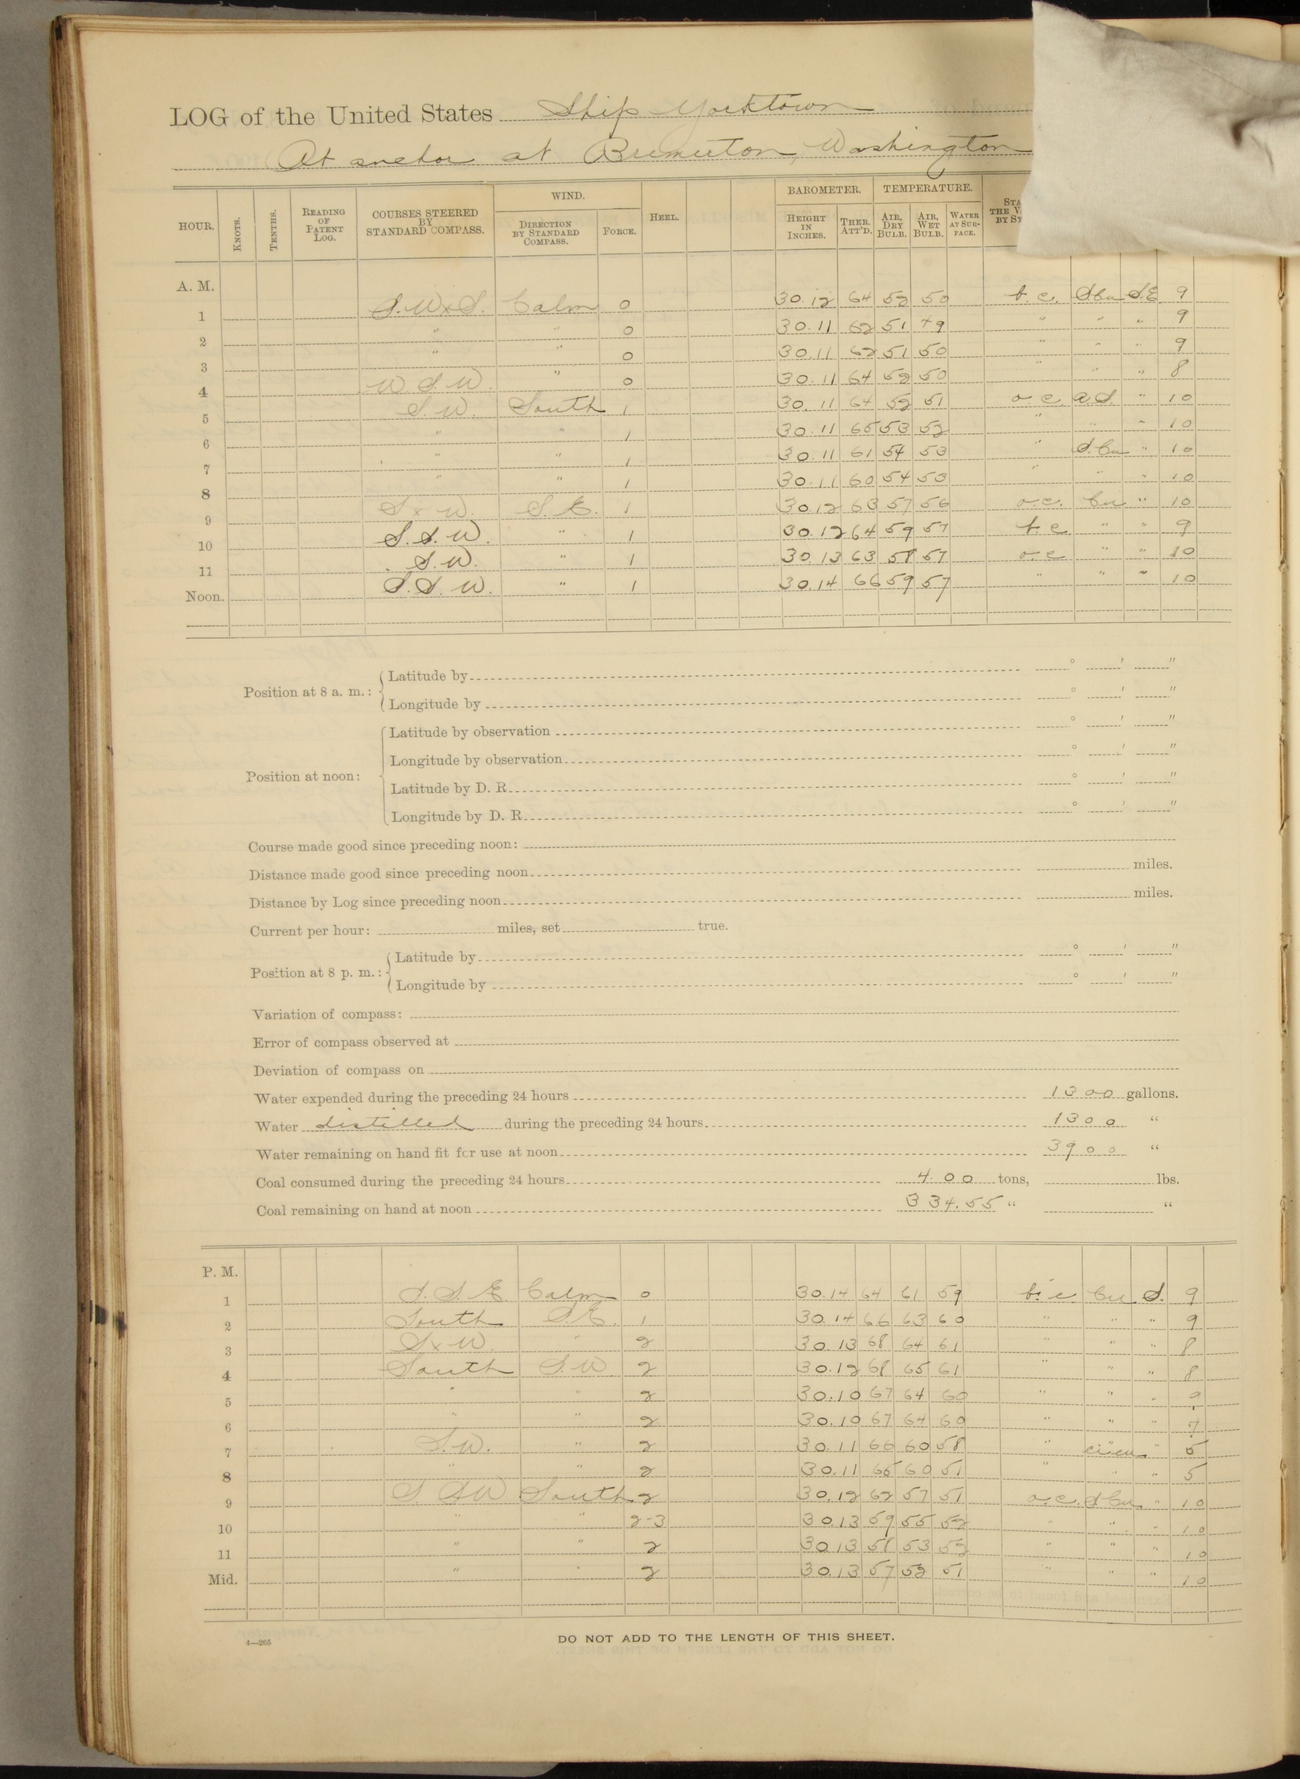 LOG of the United States Ship Yorktown
At anchor at Bremerton, Washington
WIND. BAROMETER. TEMPERATURE.
HOUR. KNOTS. TENTHS. READING OF PATENT LOG. COURSES STEERED BY STANDARD COMPASS. DIRECTION BY STANDARD COMPASS. FORCE. HEEL. HEIGHT IN INCHES. THER. ATT'D. AIR, DRY BULB. AIR, WET BULB. WATER AT SURFACE.
A. M.
1 S.W x S. Calm 0 30.12 64 52 50 b.c. S Cu S.E 9
2 " " 0 30.11 62 51 49 " " " 9
3 " " 0 30.11 62 51 50 " " " 9
4 W S.W. " 0 30.11 64 52 50 " " " 8
5 S.W. South 1 30.11 64 52 51 o.c. a.S. " 10
6 " " 1 30.11 65 53 52 " " " 10
7 " " 1 30.11 61 54 53 " S.Cu " 10
8 " " 1 30.11 60 54 53 " " " 10
9 S x W. S.E. 1 30.12 63 57 56 o.c. Cu " 10
10 S.S.W. " 1 30.12 64 59 57 b.c " " 9
11 S.W. " 1 30.13 63 58 57 o.c " " 10
Noon. S.S.W. " 1 30.14 66 59 57 " " " 10
Position at 8 a. m.: Latitude by ° ' "
Longitude by ° ' "
Position at noon: Latitude by observation ° ' "
Longitude by observation ° ' "
Latitude by D. R. ° ' "
Longitude by D. R. ° ' "
Course made good since preceding noon:
Distance made good since preceding noon miles.
Distance by Log since preceding noon miles.
Current per hour: miles, set true.
Position at 8 p. m.: Latitude by ° ' "
Longitude by ° ' "
Variation of compass:
Error of compass observed at
Deviation of compass on
Water expended during the preceding 24 hours 1300 gallons.
Water distilled during the preceding 24 hours 1300 "
Water remaining on hand fit for use at noon 3900 "
Coal consumed during the preceding 24 hours 4.00 tons, lbs.
Coal remaining on hand at noon 334.55 " "
P. M.
1 S.S.E Calm 0 30.14 64 61 59 b.c Cu S. 9
2 South S.E. 1 30.14 66 63 60 " " " 9
3 S x W. " 2 30.13 68 64 61 " " " 8
4 South S.W 2 30.12 68 65 61 " " " 8
5 " " 2 30.10 67 64 60 " " "
6 " " 2 30.10 67 64 60 " " " 7
7 S.W. " 2 30.11 66 60 58 " " 5
8 " " 2 30.11 65 60 51 " " " 5
9 South 2 30.12 62 57 51 o.c. S Cu " 10
10 " " 2-3 30.13 59 55 52 " " " 10
11 " " 2 30.13 58 53 52 " " " 10
Mid. " " 2 30.13 57 52 51 " " " 10
4—265
DO NOT ADD TO THE LENGTH OF THIS SHEET.